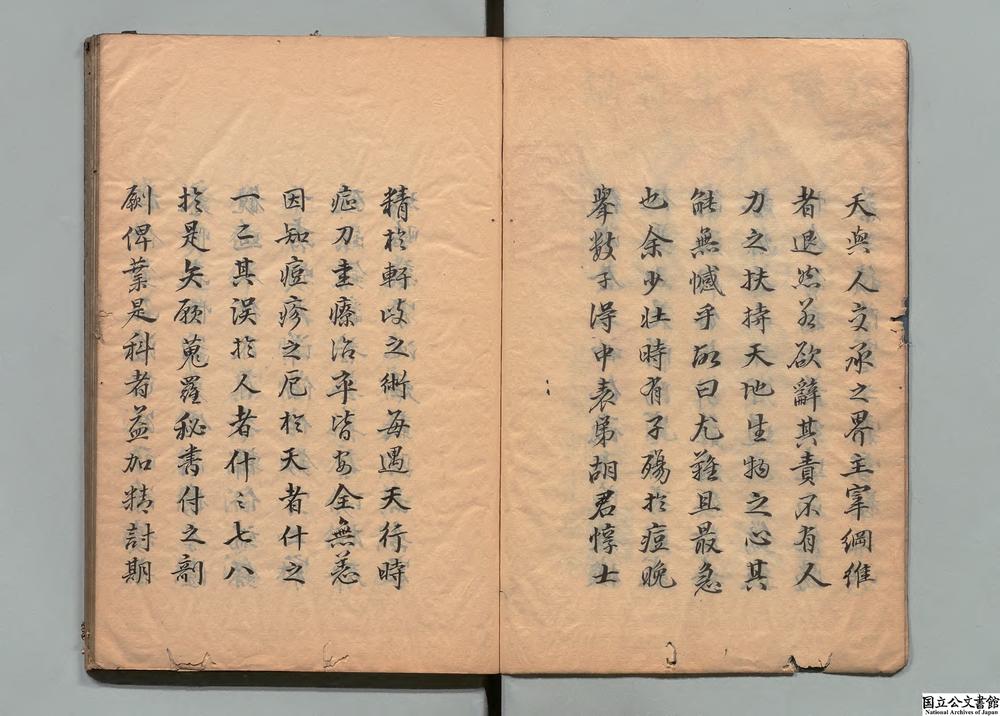 天與人交承之界主宰綱維
者退然若欲辭其責不有人
力之扶持天地生物之心其
能無憾乎故曰尤難且最急
也余少壯時有子殤於痘晚
舉数子得中表弟胡君惇士
精於軒岐之術每遇天行時
症刀圭療治卒皆安全無恙
因知痘疹之厄於天者什之
一二其誤於人者什之七八
於是矢願蒐羅秘書付之剞
劂俾葉是科者益加精討期
国立公文書館
National Archives of Japan